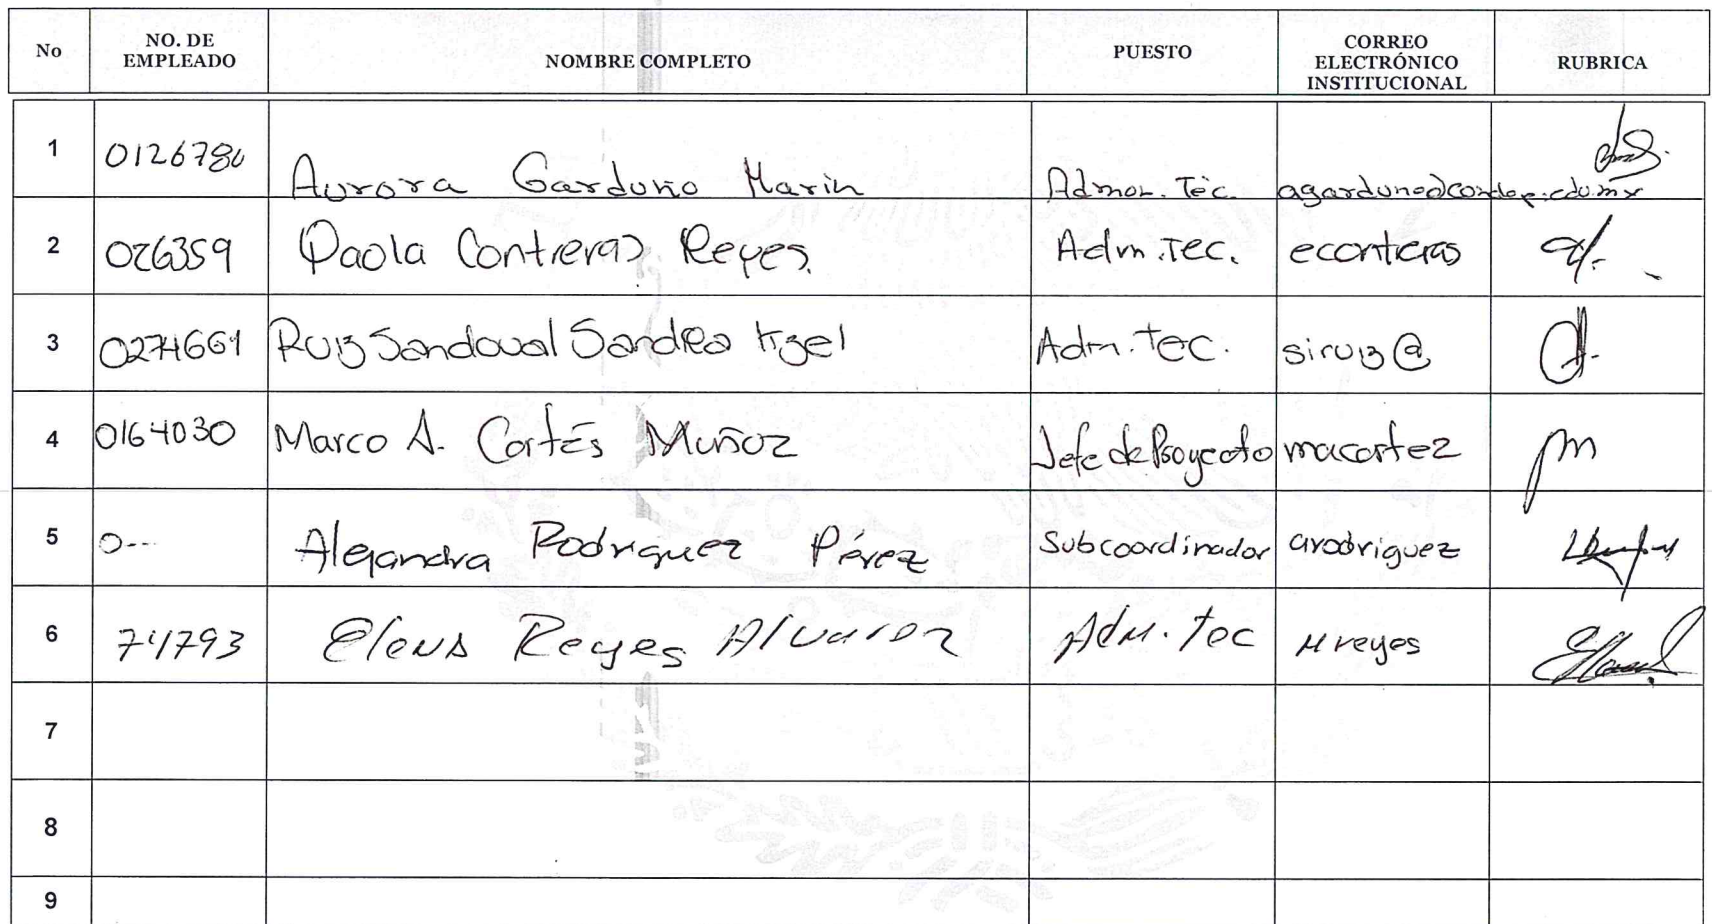 No NO. DE EMPLEADO NOMBRE COMPLETO PUESTO CORREO ELECTRÓNICO INSTITUCIONAL RUBRICA
1 0126780 Aurora Garduño Marin Admor. Téc.
2 026359 Paola Contreras Reyes. Adm.Tec. econtreras
3 0274661 Ruiz Sandoval Sandra Itzel Adm.tec. siruiz@
4 0164030 Marco A. Cortés Muñoz Jefe de Proyecto macortez
5 0--- Alejandra Rodriguez Pérez Subcoordinador arodriguez
6 74793 Elena Reyes Alvarez Adm. Tec Mreyes
7
8
9